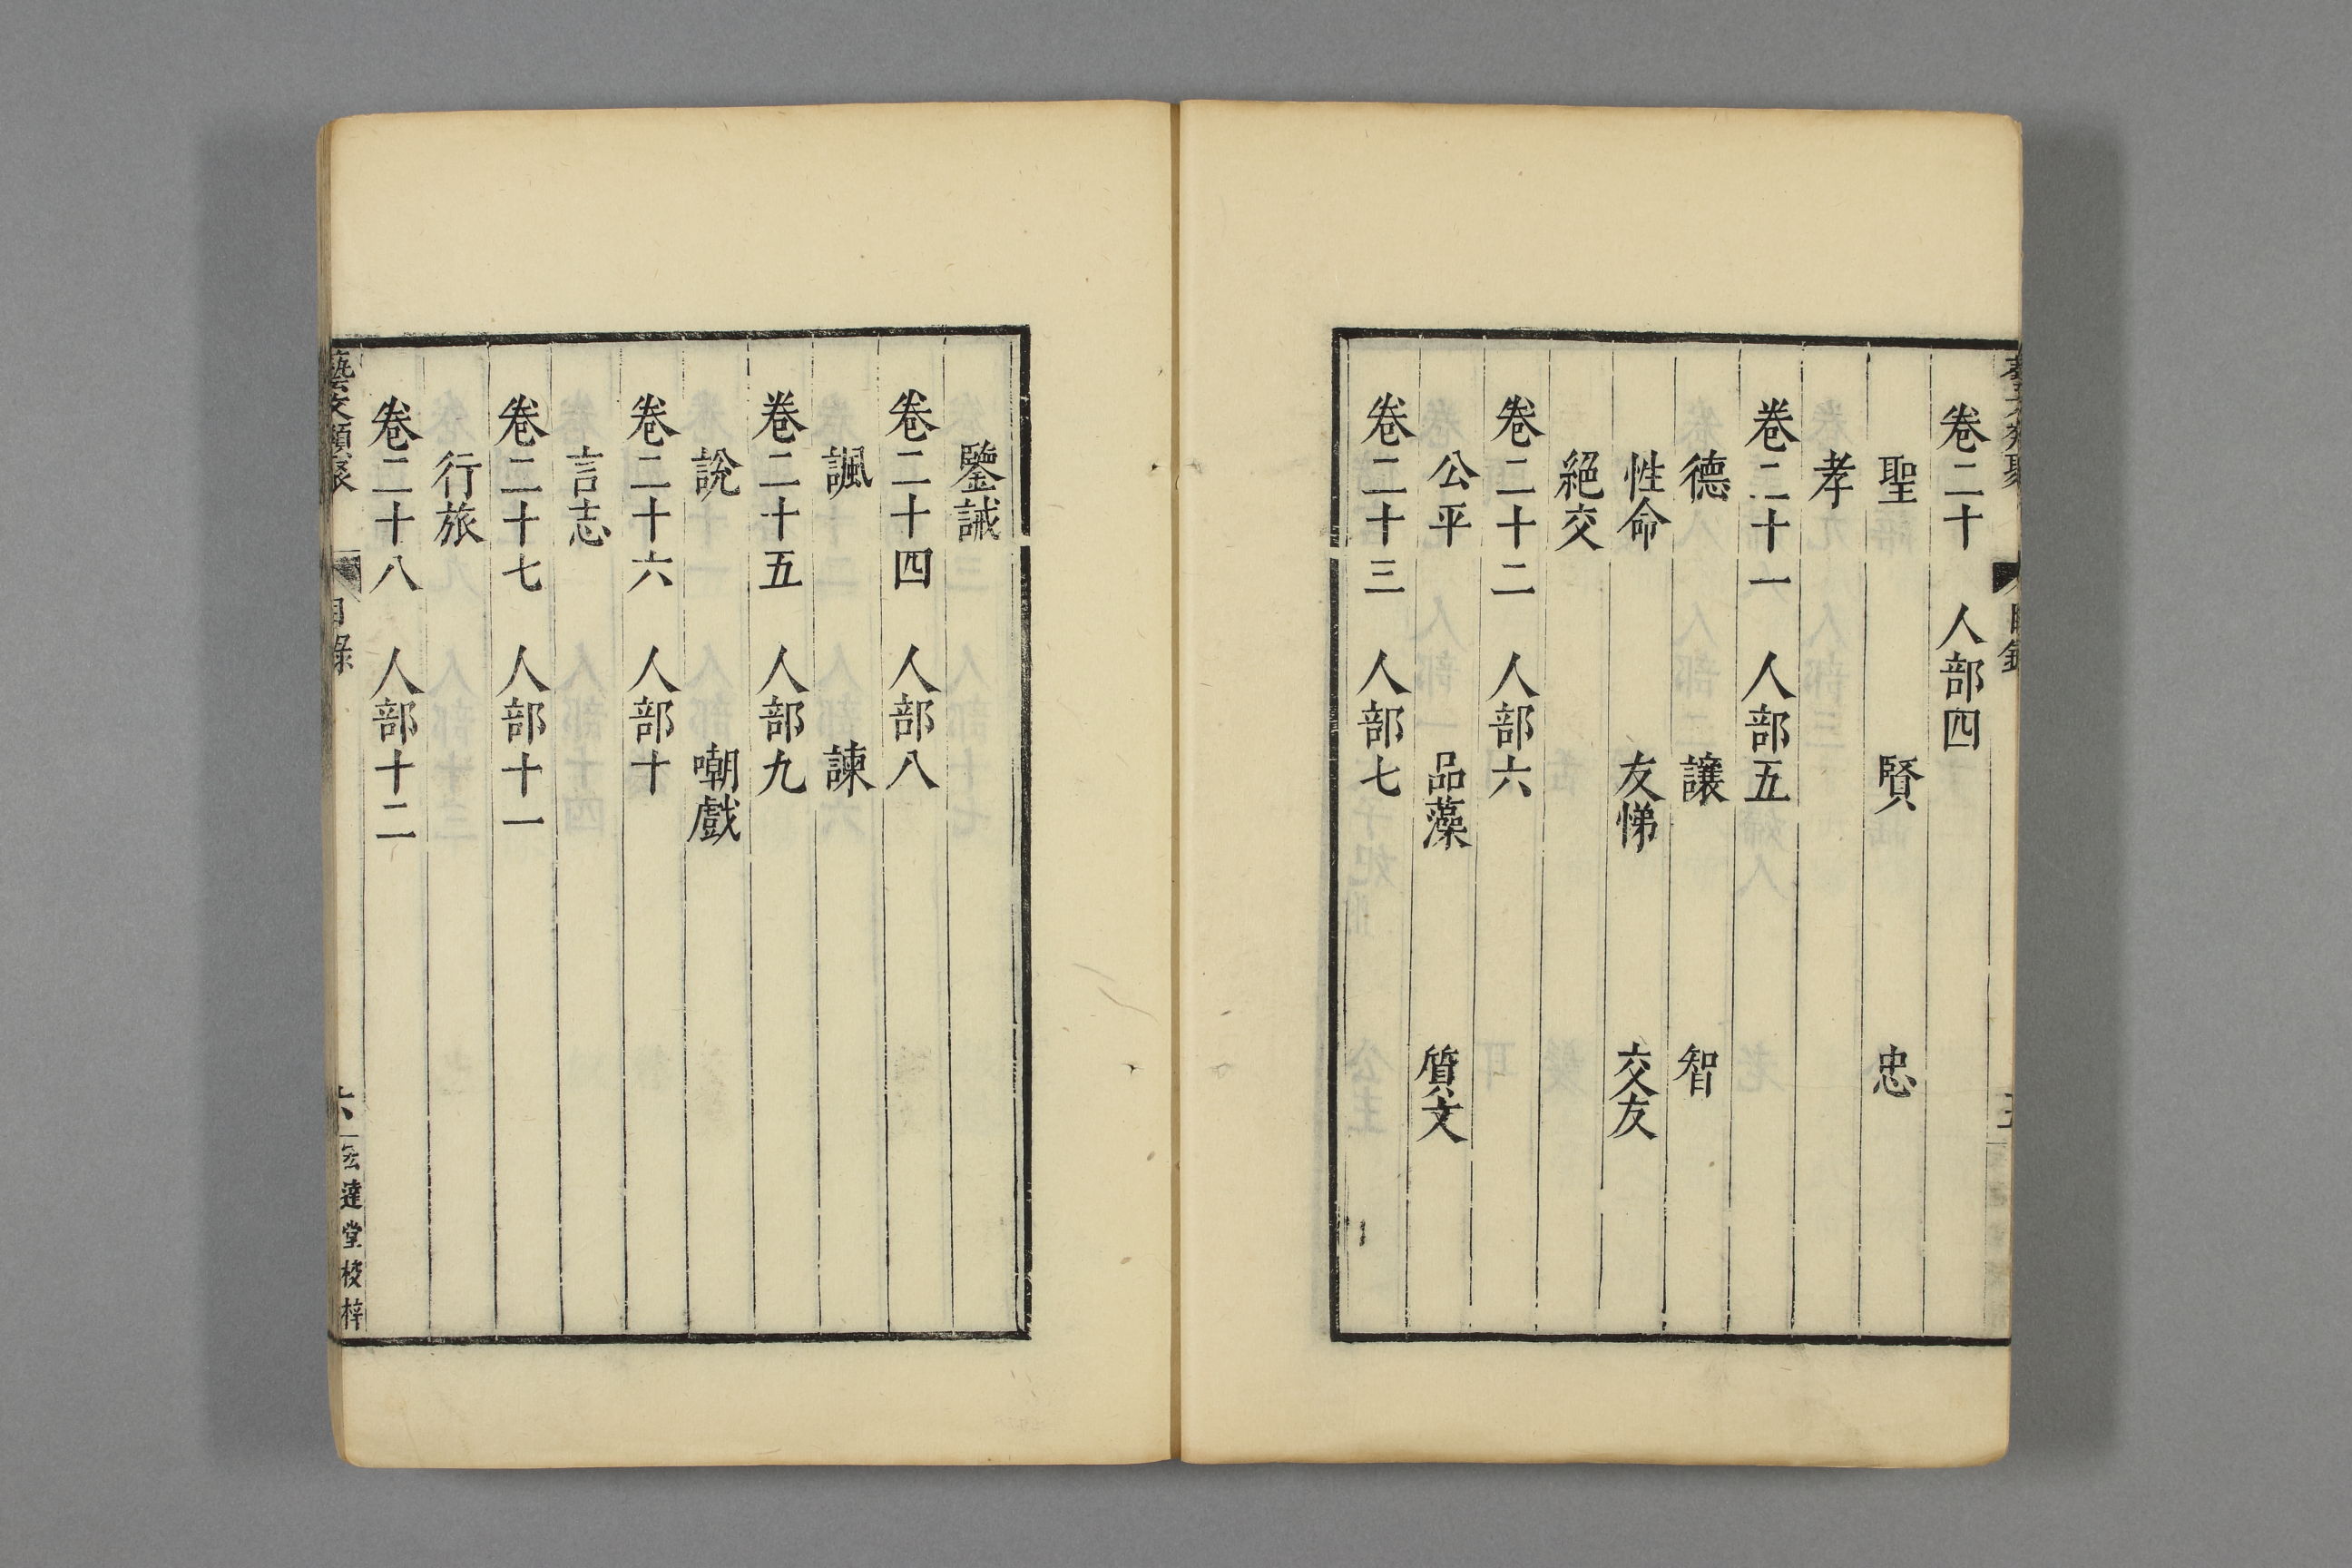 卷二十　人部四
聖　賢　忠
孝
卷二十一　人部五
德　讓　智
性命　友悌　交友
絕交
卷二十二　人部六
公平　品藻　質文
卷二十三　人部七
鑒誡
卷二十四　人部八
諷　諫
卷二十五　人部九
說　嘲戲
卷二十六　人部十
言志
卷二十七　人部十一
行旅
卷二十八　人部十二
藝文類聚　目錄　六　宏達堂校梓